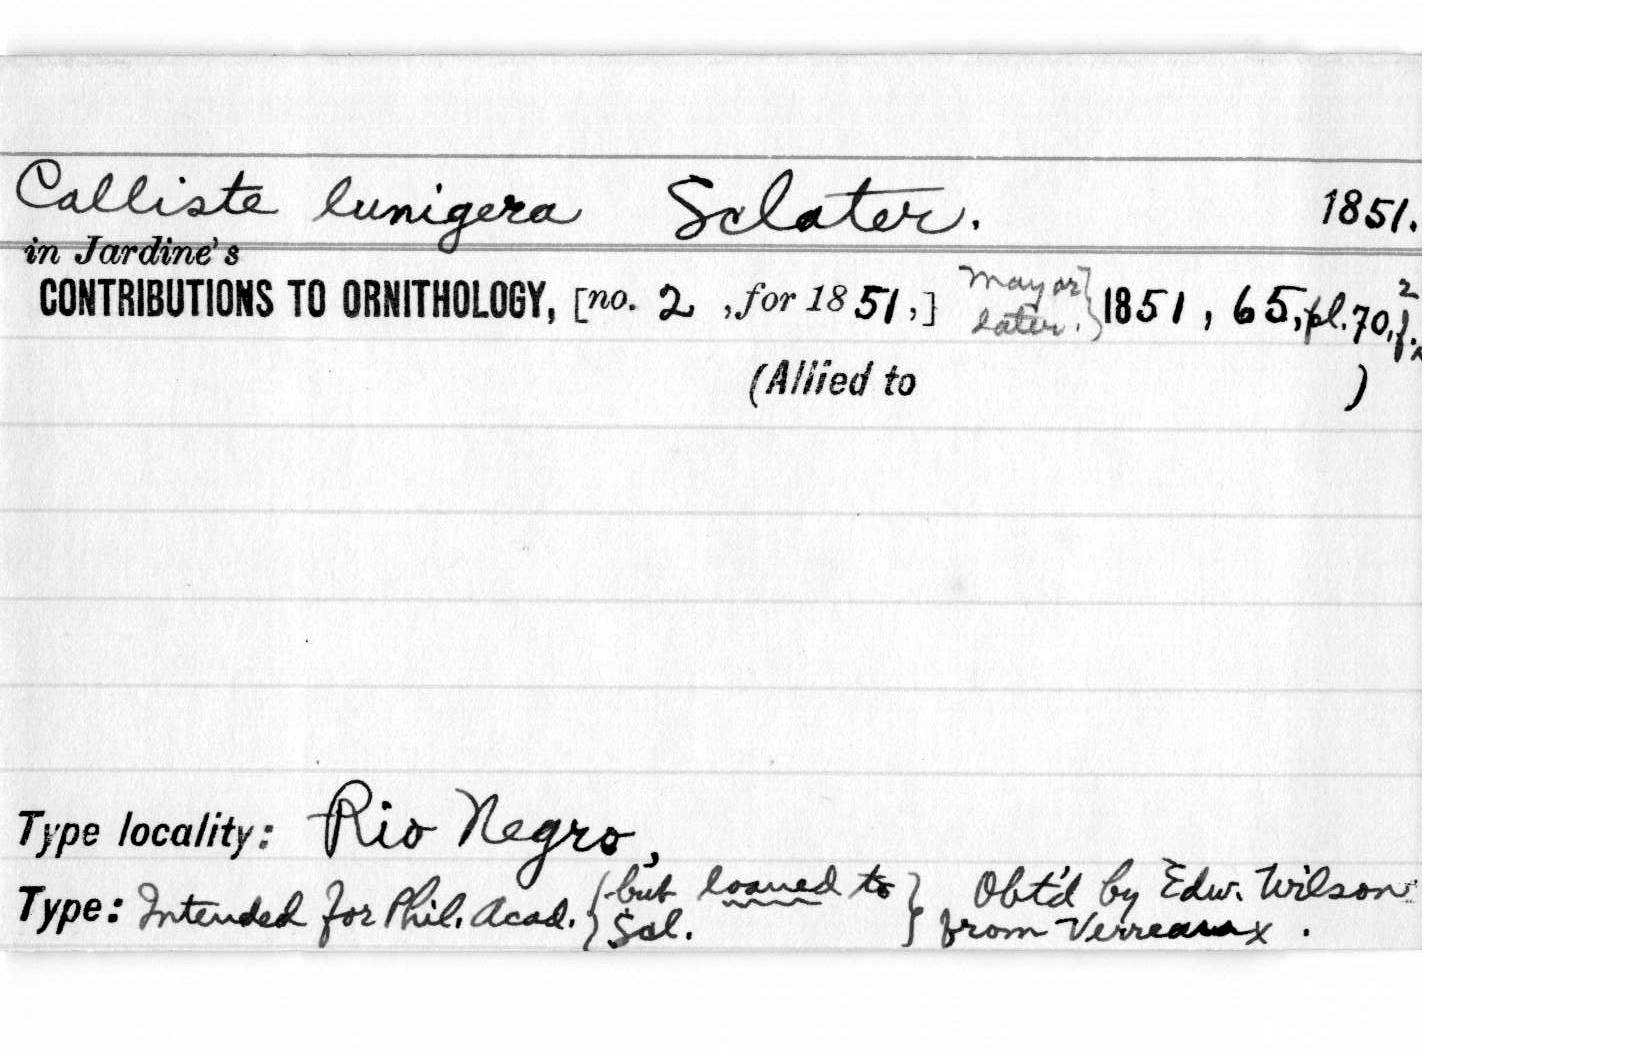 Calliste lunigera Sclater. 1851.
in Jardine's
CONTRIBUTIONS TO ORNITHOLOGY, [no. 2 , for 1851,] May or later.} 1851, 65, pl. 70, f. 2
(Allied to )
Type locality: Rio Negro,
Type: Intended for Phil. Acad. {but loaned to Scl.} Obt'd by Edw. Wilson
from Verreaux.